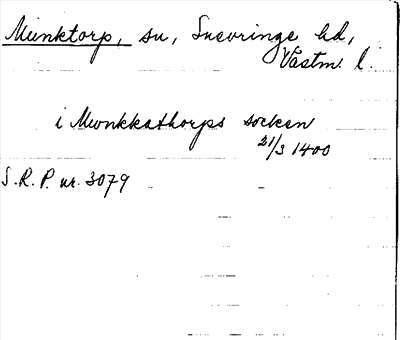 Munktorp, sn, Snevringe hd,
Västm. l.
i Mwnkkathorps socken
21/3 1400
S.R.P. nr. 3079